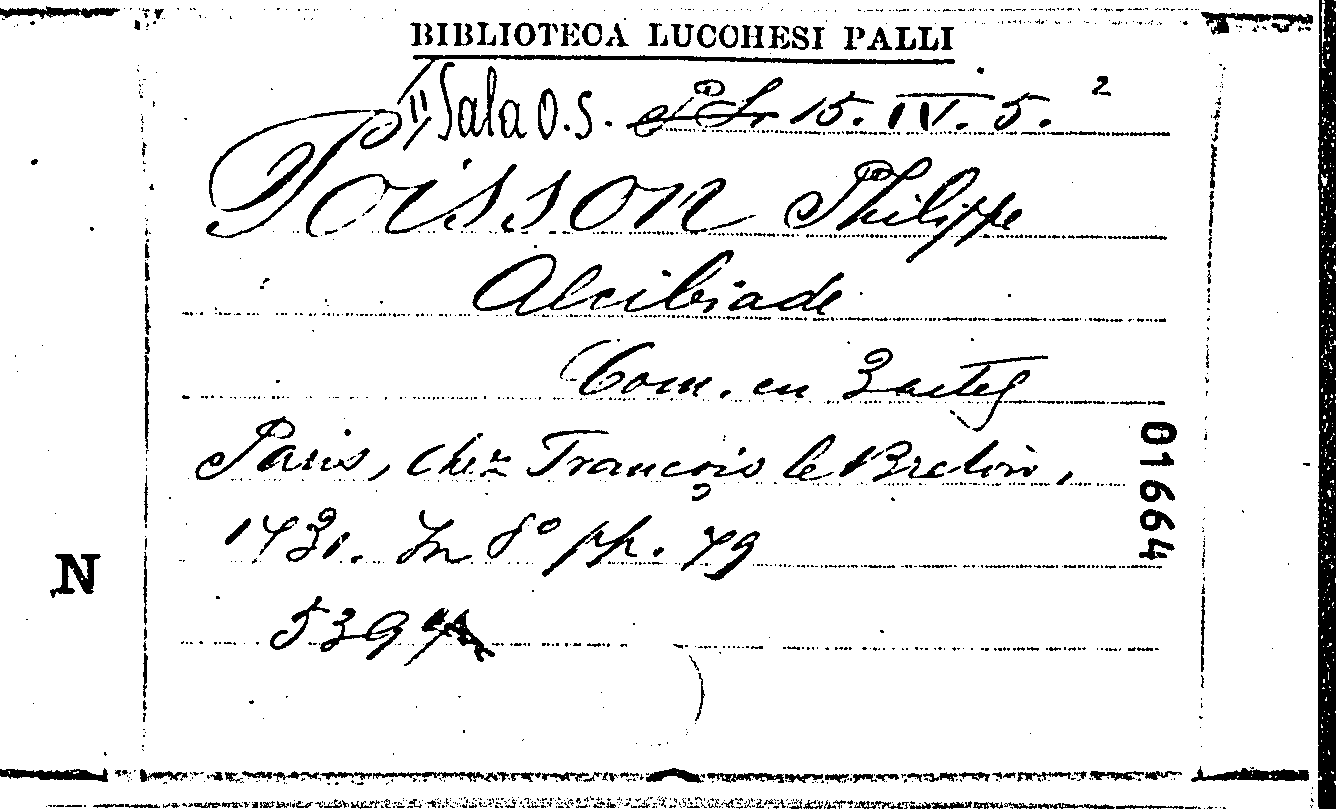 BIBLIOTECA LUCCHESI PALLI
II Sala O.S. 15. IV. 5. 2
Poisson Philippe
Alcibiade
Com. en 3 actes
Paris, chez François le Breton,
1731. In 8° pp. 79
01664
N
5394